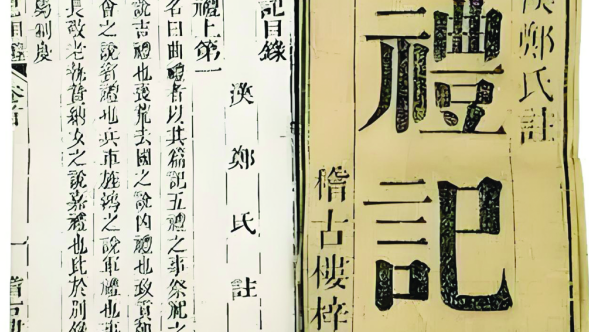 漢鄭氏註
禮記
稽古樓梓
記目錄
漢鄭氏註
禮上第一
名曰曲禮者以其篇記五禮之事祭祀之
說吉禮也喪荒去國之說凶禮也致貢朝
會之說賓禮也兵車旌鴻之說軍禮也事
長敬老執贄納女之說嘉禮也此於別錄
屬制度